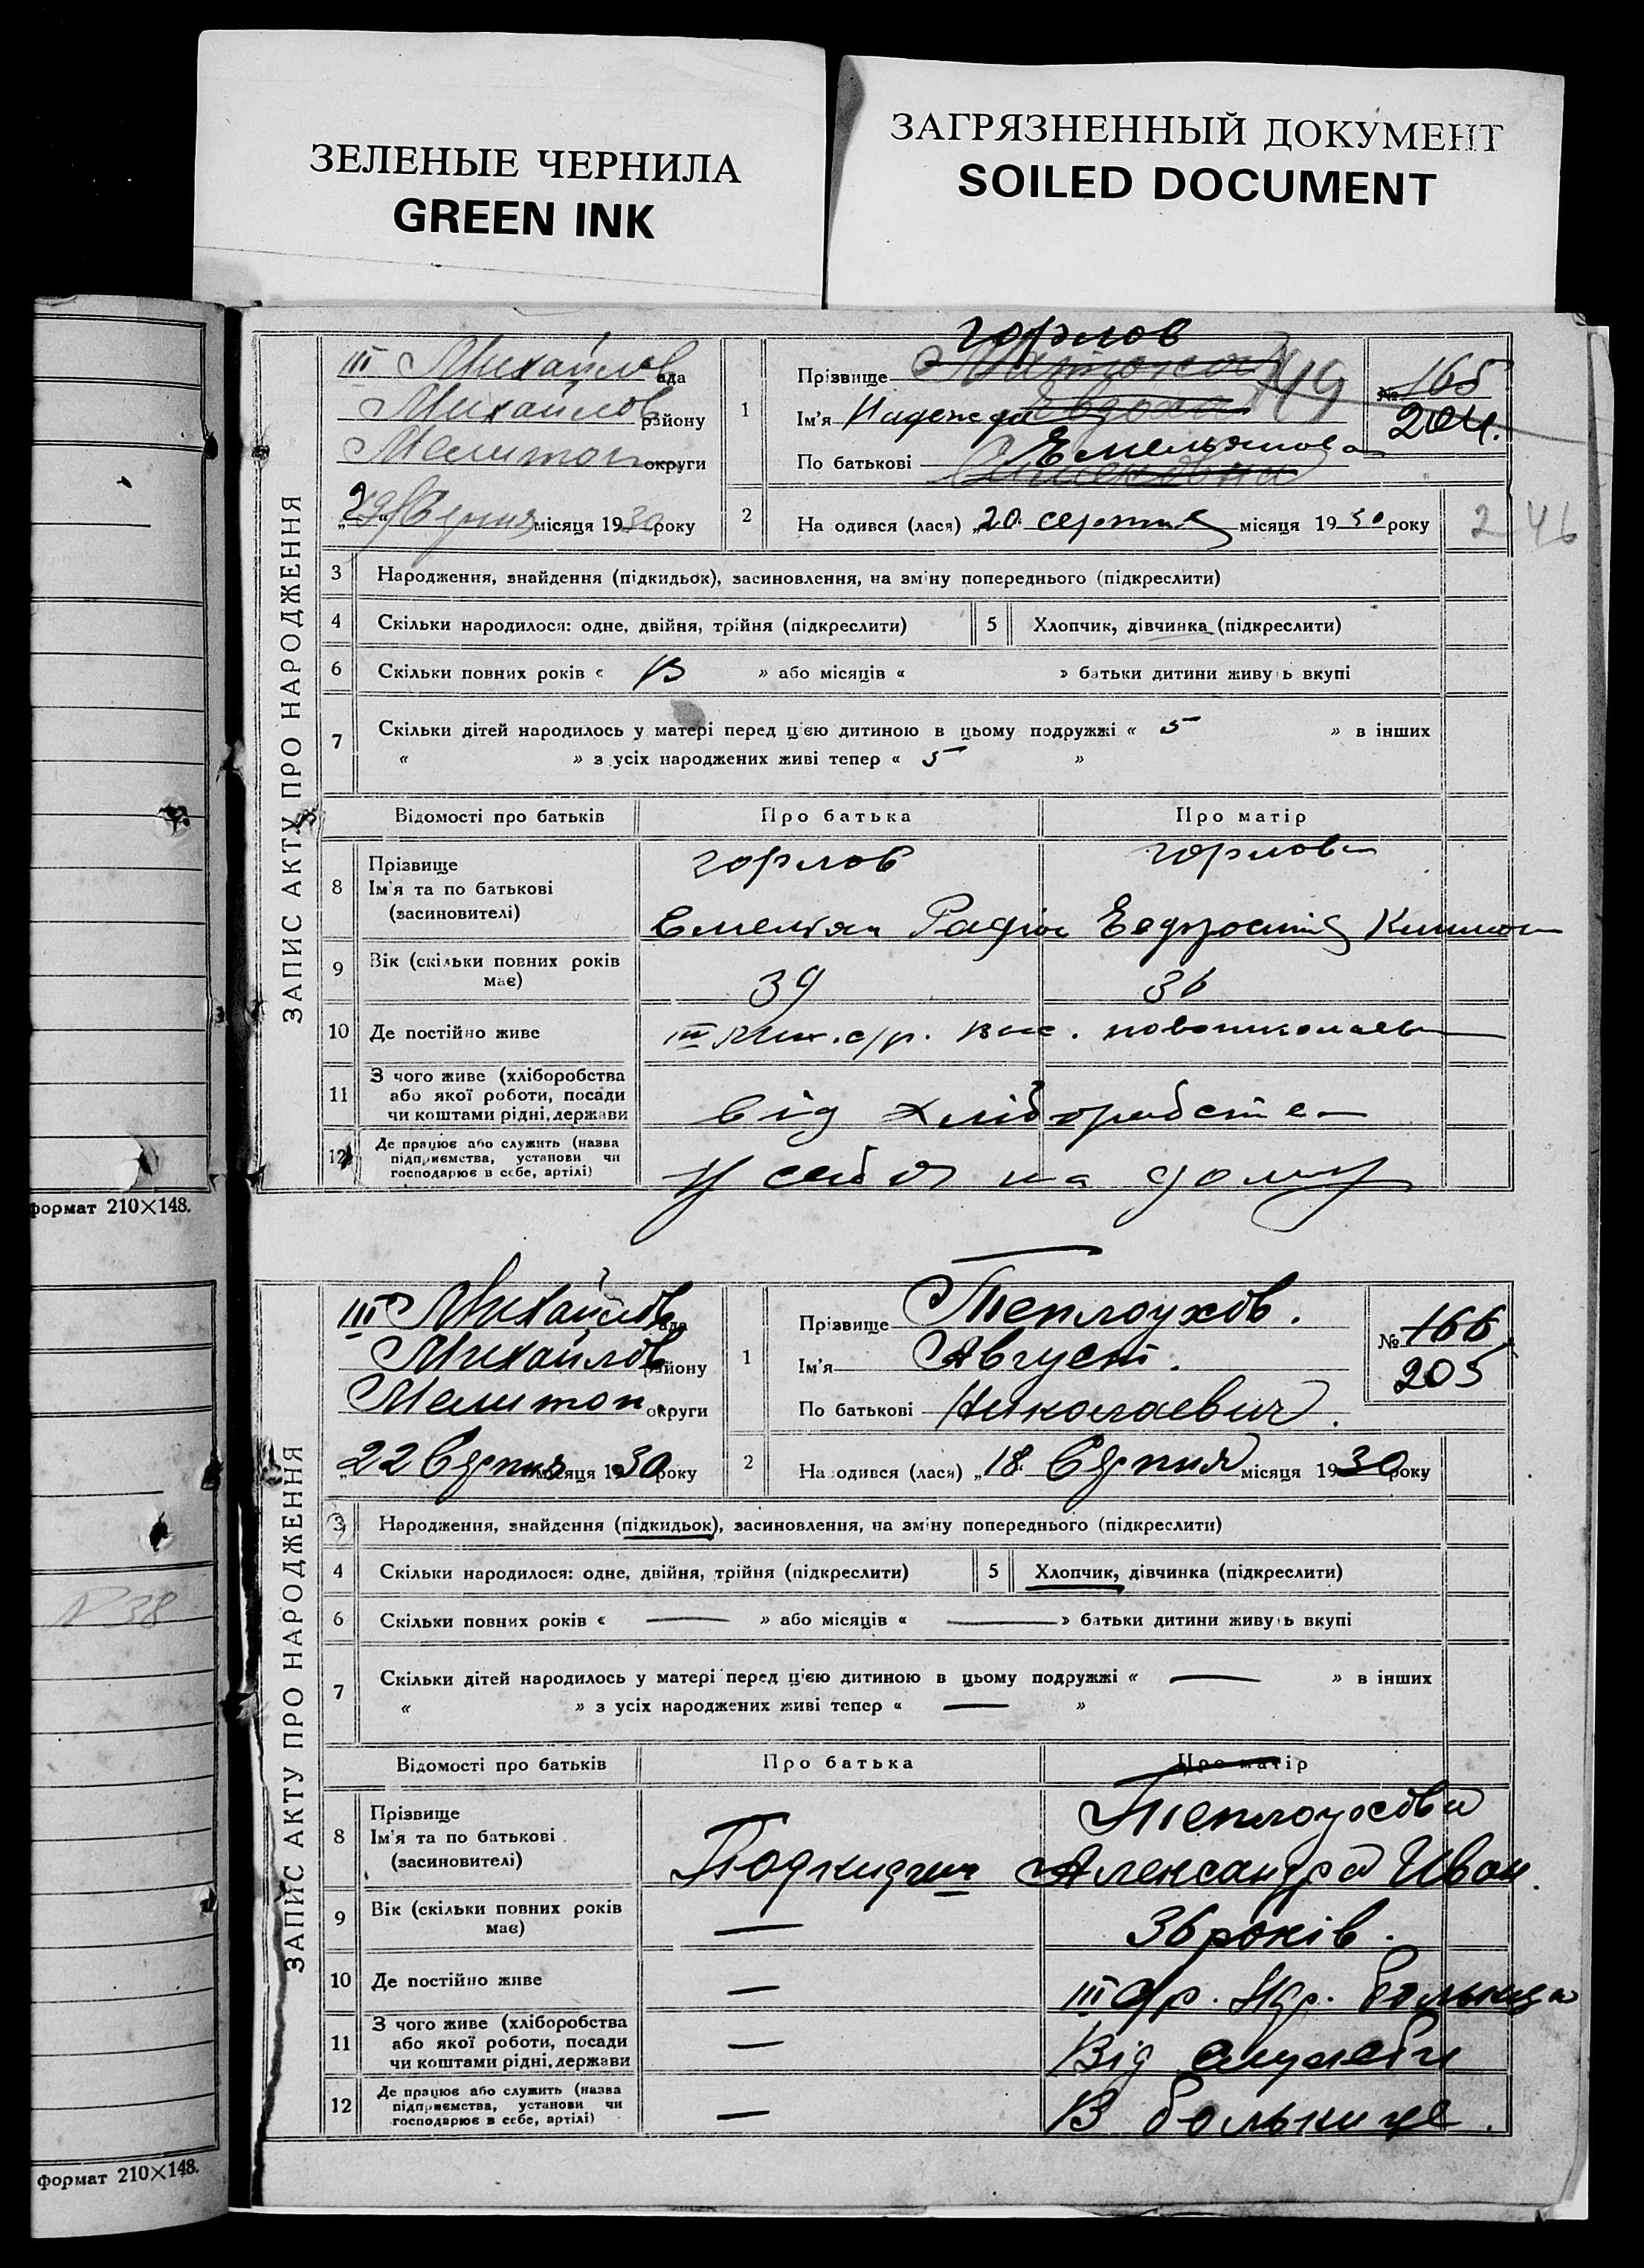 ЗЕЛЕНЫЕ ЧЕРНИЛА
GREEN INK
ЗАГРЯЗНЕННЫЙ ДОКУМЕНТ
SOILED DOCUMENT
формат 210×148.
№ 38
формат 210×148.
ЗАПИС АКТУ ПРО НАРОДЖЕННЯ
III Михайлов ада
Михайлов району
Мелитоп округи
Серпня місяця 1930 року
1
Горлов
Прізвище
Ім'я Надежда
По батькові Емельянова
№ 165
204.
149
2 На одився (лася) „20" серпня місяця 1930 року
2 46
3 Народження, знайдення (підкидьок), засиновлення, на зміну попереднього (підкреслити)
4 Скільки народилося: одне, двійня, трійня (підкреслити) 5 Хлопчик, дівчинка (підкреслити)
6 Скільки повних років « 13 » або місяців « » батьки дитини живуть вкупі
7 Скільки дітей народилось у матері перед цією дитиною в цьому подружжі « 5 » в інших
« » з усіх народжених живі тепер « 5 »
Відомості про батьків Про батька Про матір
8 Прізвище
Ім'я та по батькові
(засиновителі)
Горлов
Емельян Радіон
Горлова
Евдросинія Климов
9 Вік (скільки повних років має) 39 36
10 Де постійно живе III Мих. с/р. вис. новониколаев
11 З чого живе (хліборобства
або якої роботи, посади
чи коштами рідні, держави
від хліборобства
12 Де працює або служить (назва
підприємства, установи чи
господарює в себе, артілі)
у себе на дому
ЗАПИС АКТУ ПРО НАРОДЖЕННЯ
III Михайлов ада
Михайлов району
Мелитоп округи
„22 Серпня місяця 1930 року
1
Прізвище Теплоухов.
Ім'я Август.
По батькові Николаевич.
№ 166
205
2 На одився (лася) „18" Серпня місяця 1930 року
3 Народження, знайдення (підкидьок), засиновлення, на зміну попереднього (підкреслити)
4 Скільки народилося: одне, двійня, трійня (підкреслити) 5 Хлопчик, дівчинка (підкреслити)
6 Скільки повних років « — » або місяців « — » батьки дитини живуть вкупі
7 Скільки дітей народилось у матері перед цією дитиною в цьому подружжі « — » в інших
« » з усіх народжених живі тепер « — »
Відомості про батьків Про батька Про матір
8 Прізвище
Ім'я та по батькові
(засиновителі)
Подкидыш
Теплоухова
Александра Иван.
9 Вік (скільки повних років має) — 36 років.
10 Де постійно живе — III с/р. больница
11 З чого живе (хліборобства
або якої роботи, посади
чи коштами рідні, держави
— Від служби
12 Де працює або служить (назва
підприємства, установи чи
господарює в себе, артілі)
— В больнице.